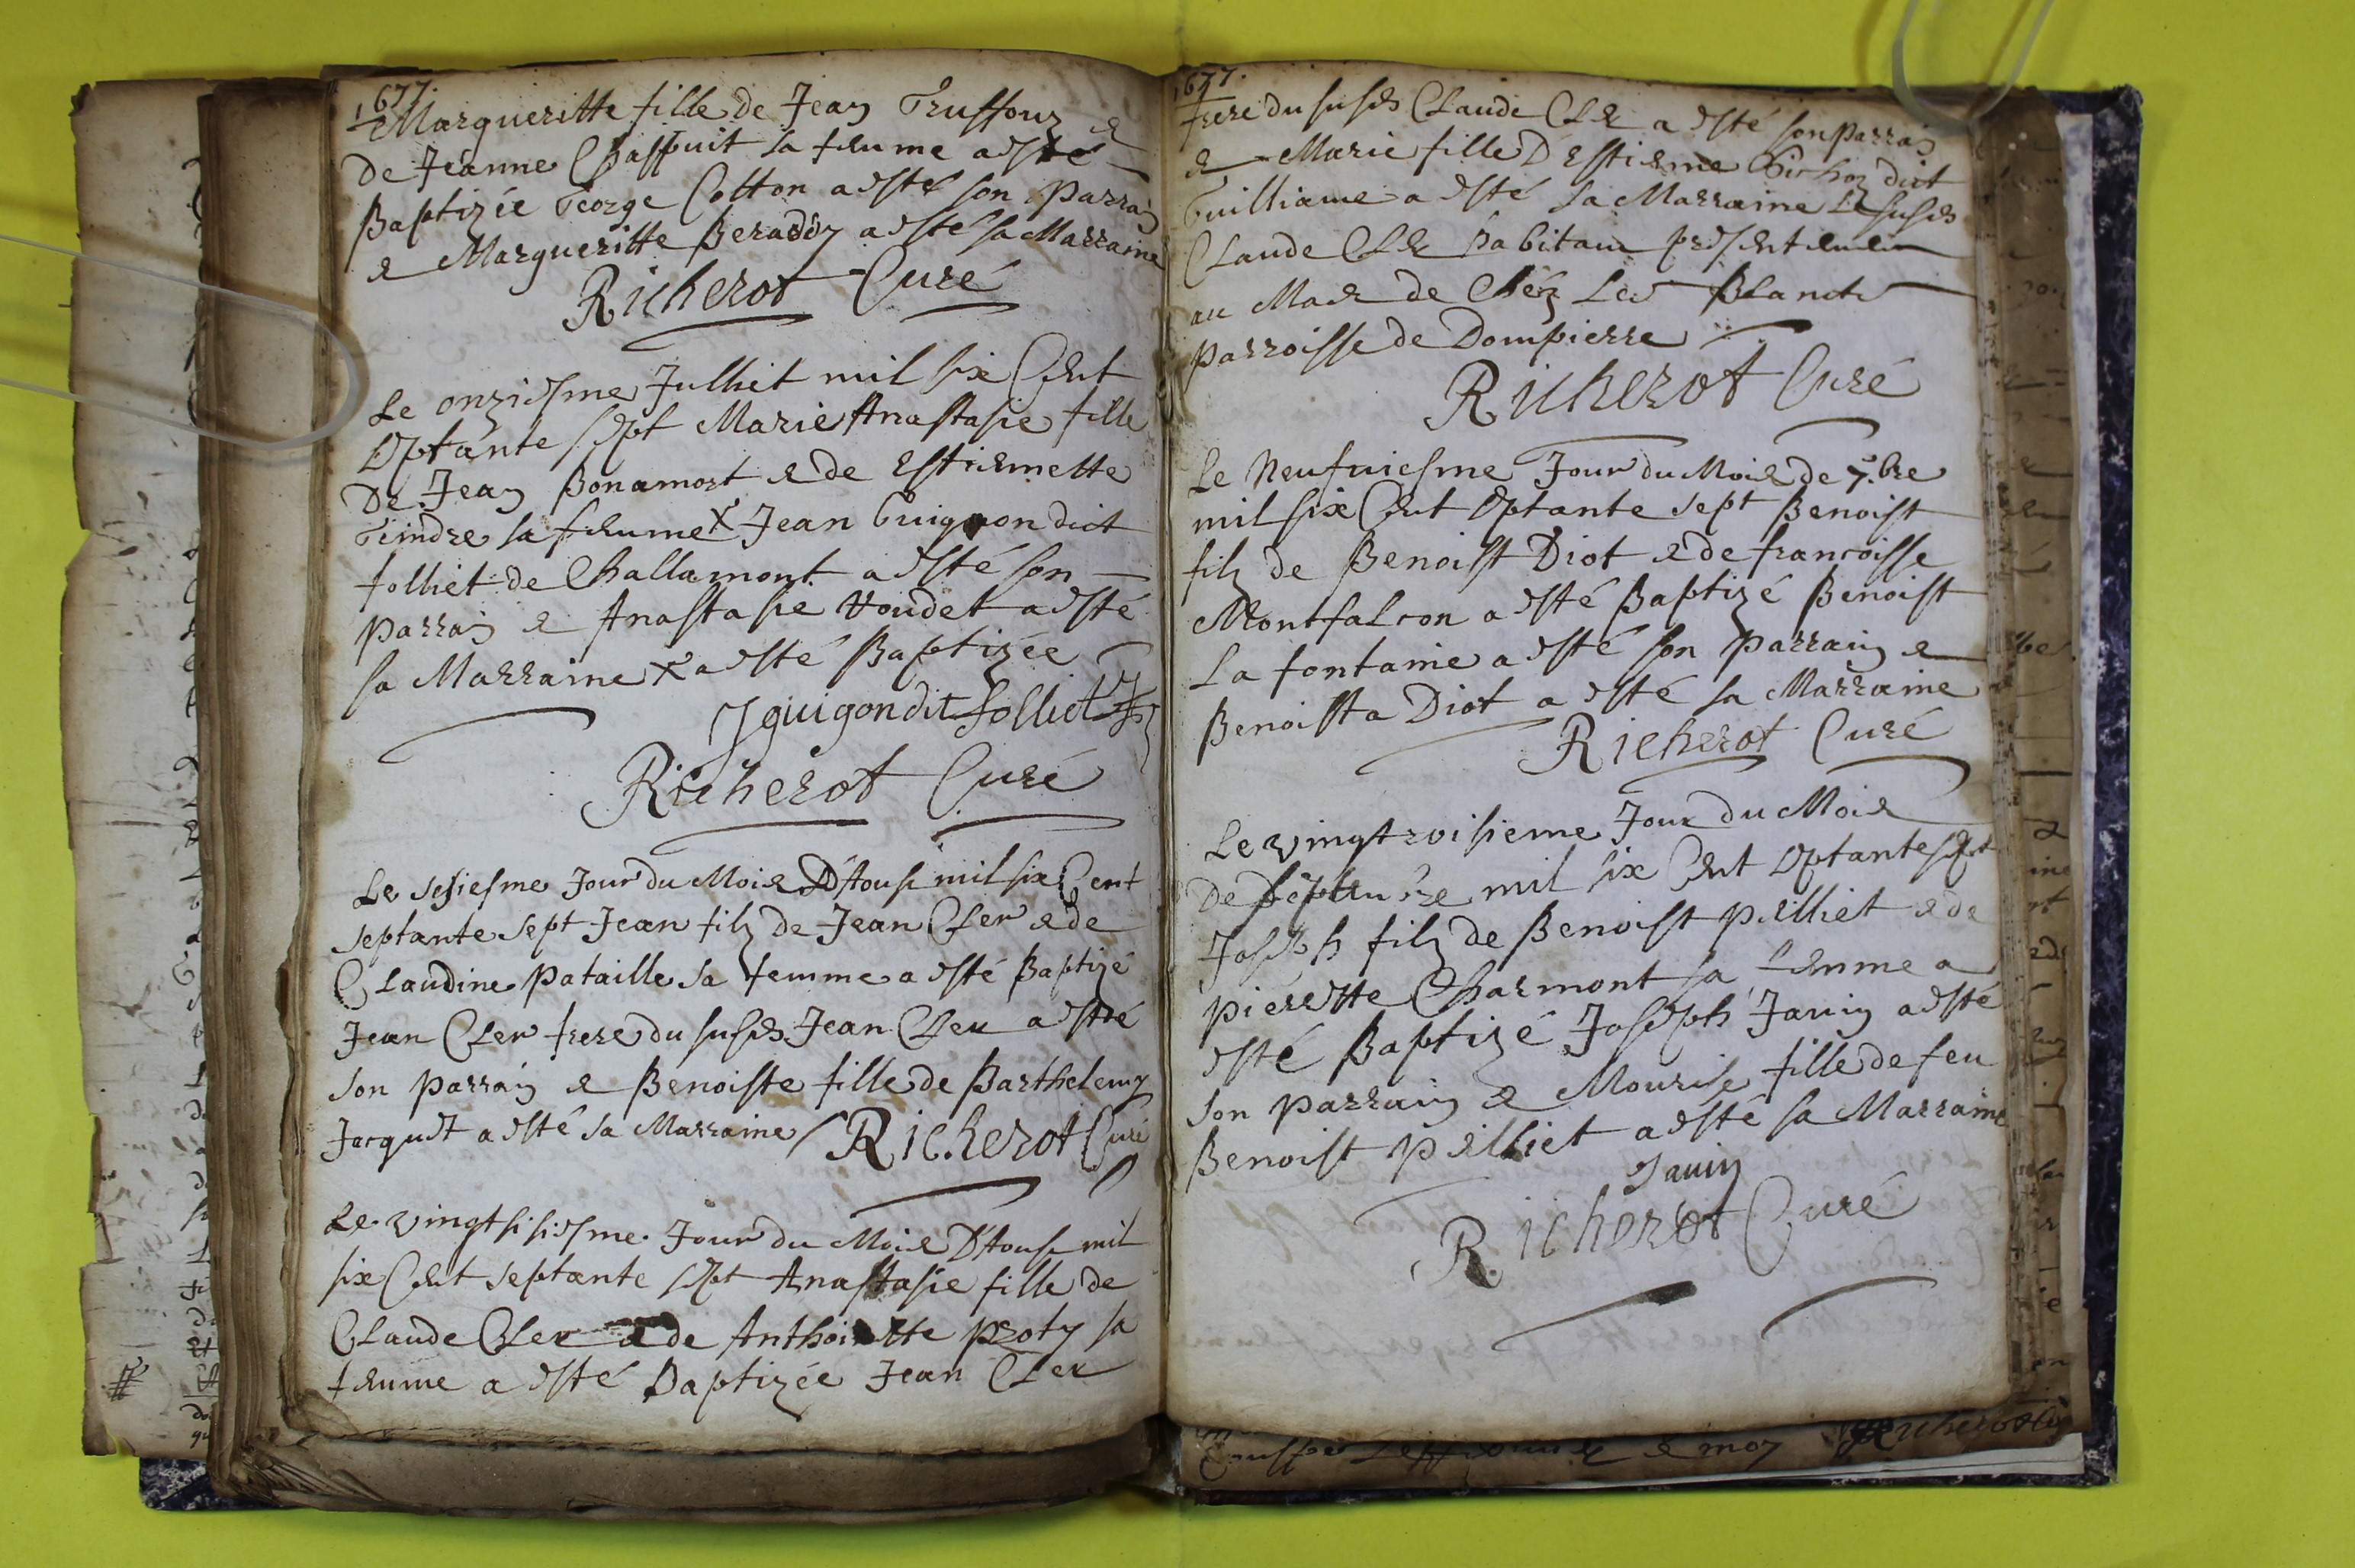 1677.
Margueritte fille de Jean Truffon e
de Jeanne Chassuit sa femme a esté
Baptizée George Cotton a esté son parrain
e Margueritte Beraddy a esté sa Marraine
Richerot Curé
Le onziesme Julliet mil six Cent
Septante sept Marie Anastasie fille
De Jean Bonamort e de Estiennette
Teindre sa femme x Jean Guigon dict
folliet de Challamont a esté son
parrain e Anastasie Voudet a esté
sa Marraine x a esté Baptizée
J guigon dit folliet
Richerot Curé
Le sesiesme Jour du Mois D'Aoust mil six Cent
septante sept Jean filz de Jean Cler e de
Claudine Pataille sa femme a esté Baptizé
Jean Cler frere du susdt Jean Cler a esté
son parrain e Benoiste fille de Barthelemy
Jacquet a esté sa Marraine Richerot Curé
Le vingtsisiesme Jour du Mois D'Aoust mil
six Cent septante sept Anastasie fille de
Claude Cler e de Anthoinette Proty sa
femme a esté Baptizée Jean Cler
1677.
frere du susdt Claude Cler a esté son parrain
e Marie fille D'Estienne Pichon dict
Guilliame a esté sa Marraine Le susdt
Claude Cler habitant presentement
au Mas de Chéz Les Blancs
parroisse de Dompierre
Richerot Curé
Le Neufviesme Jour du Mois de 7.bre
mil six Cent Septante sept Benoist
filz de Benoist Diot e de francoisse
Montfalcon a esté Baptizé Benoist
La fontaine a esté son parrain e
Benoista Diot a esté sa Marraine
Richerot Curé
Le vingtroisieme Jour du Mois
De Septembre mil six Cent Septante sept
Joseph filz de Benoist pelliet e de
pierette Charmont sa femme a
esté Baptizé Joseph Janin a esté
son parrain e Mourise fille de feu
Benoist pelliet a esté sa Marraine
Janin
Richerot Curé